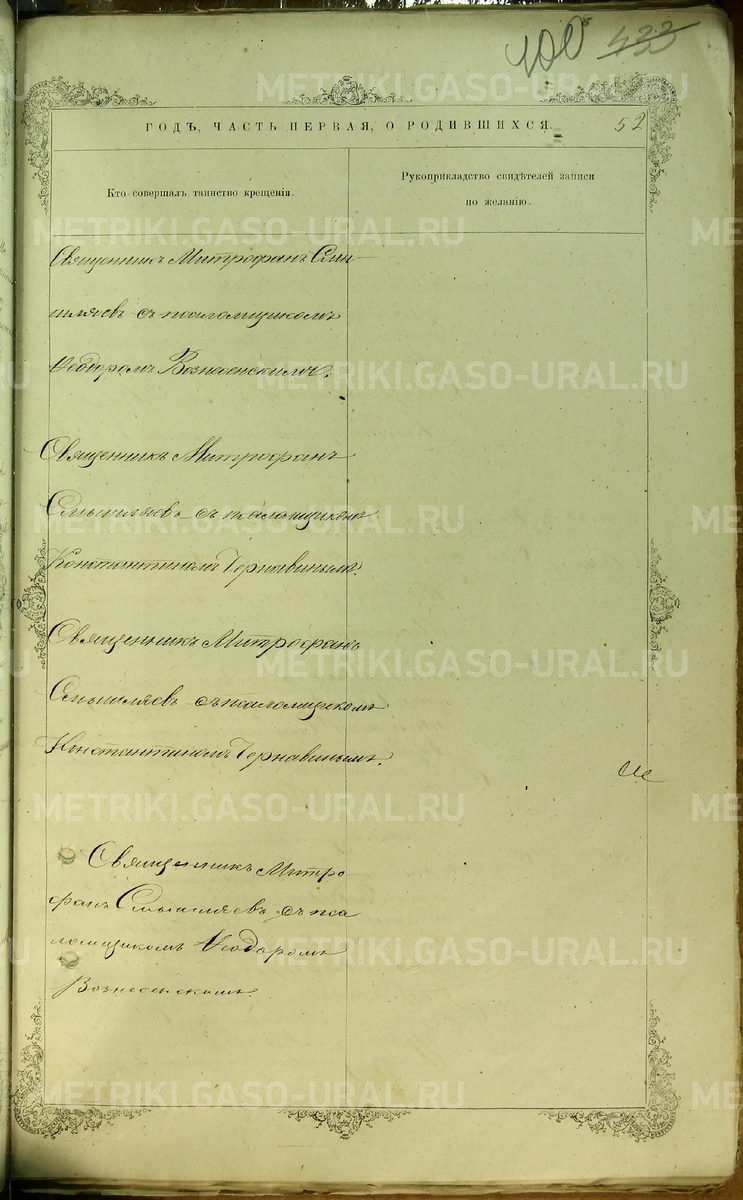 100 433
ГОДЪ, ЧАСТЬ ПЕРВАЯ, О РОДИВШИХСЯ.
52
Кто совершалъ таинство крещенія.
Рукоприкладство свидѣтелей записи
по желанію.
Священникъ Митрофанъ Смы-
шляевъ съ псаломщикомъ
Ѳеодоромъ Вознесенскимъ.
Священникъ Митрофанъ
Смышляевъ съ псаломщикомъ
Константиномъ Чернавинымъ.
Священникъ Митрофанъ
Смышляевъ съ псаломщикомъ
Константиномъ Чернавинымъ.
Священникъ Митро
фанъ Смышляевъ съ пса
ломщикомъ Ѳеодоромъ
Вознесенскимъ.
METRIKI.GASO-URAL.RU